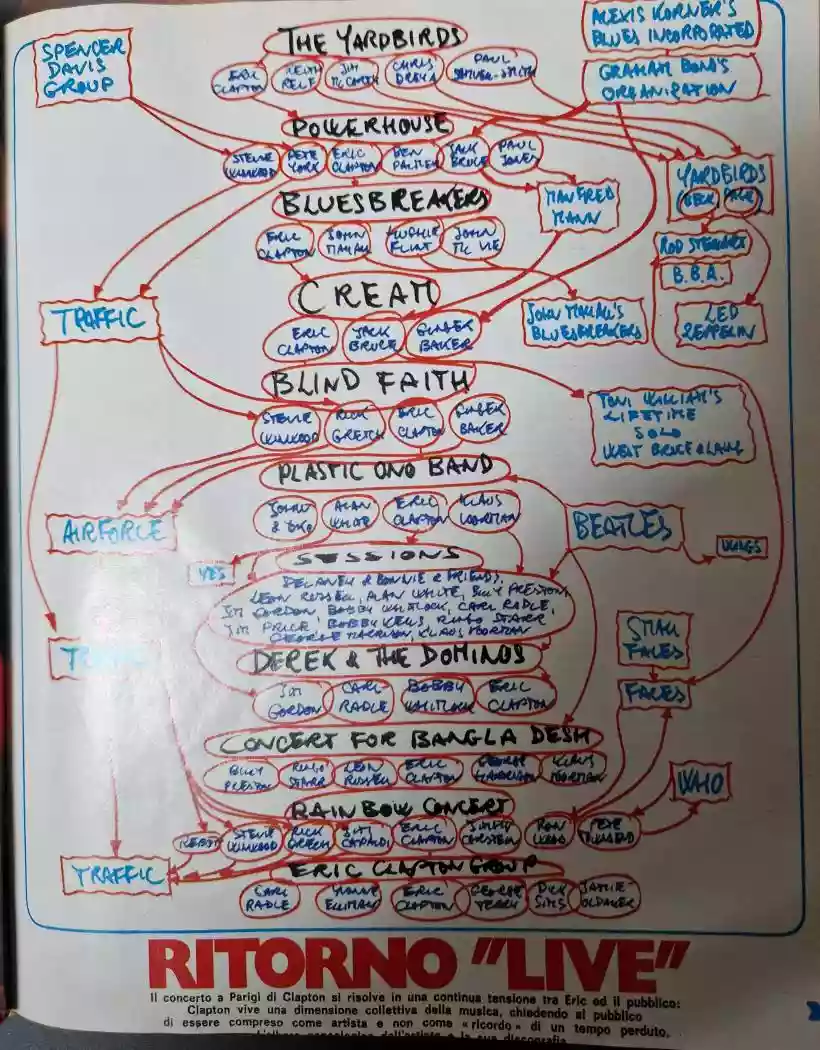 SPENCER
DAVIS
GROUP
THE YARDBIRDS
ALEXIS KORNER'S
BLUES INCORPORATED
GRAHAM BOND'S
ORGANIZATION
ERIC
CLAPTON
KEITH
RELF
JIM
CHRIS
DREJA
PAUL
POWERHOUSE
STEVIE
WINWOOD
PETE
YORK
ERIC
CLAPTON
BEN
PALMER
JACK
BRUCE
PAUL
JONES
YARDBIRDS
BECK
PAGE
MANFRED
MANN
BLUESBREAKERS
ERIC
CLAPTON
JOHN
MAYALL
HUGHIE
FLINT
JOHN
MC VIE
ROD STEWART
B.B.A.
LED
ZEPPELIN
CREAM
TRAFFIC
JOHN MAYALL'S
BLUESBREAKERS
ERIC
CLAPTON
JACK
BRUCE
GINGER
BAKER
BLIND FAITH
STEVIE
WINWOOD
RICK
GRETCH
ERIC
CLAPTON
GINGER
BAKER
TONI WILLIAM'S
LIFETIME
SOLO
WEST BRUCE & LAING
PLASTIC ONO BAND
JOHN
& YOKO
ALAN
WHITE
ERIC
CLAPTON
KLAUS
VOORMAN
AIRFORCE
BEATLES
WINGS
YES
SESSIONS
DELANEY & BONNIE & FRIENDS,
LEON RUSSELL, ALAN WHITE, BILLY PRESTON,
JIM GORDON BOBBY WHITLOCK, CARL RADLE,
JIM PRICE, BOBBY KEYS, RINGO STARR
GEORGE HARRISON, KLAUS VOORMAN
SMALL
FACES
FACES
DEREK & THE DOMINOS
JIM
GORDON
CARL
RADLE
BOBBY
WHITLOCK
ERIC
CLAPTON
CONCERT FOR BANGLA DESH
BILLY
PRESTON
RINGO
STARR
LEON
RUSSELL
ERIC
CLAPTON
GEORGE
HARRISON
KLAUS
VOORMAN
WHO
RAINBOW CONCERT
REBOP
STEVIE
WINWOOD
RICK
GRECH
JIM
CAPALDI
ERIC
CLAPTON
JIMMY
RON
WOOD
PETE
TRAFFIC
ERIC CLAPTON GROUP
CARL
RADLE
YVONNE
ELLIMAN
ERIC
CLAPTON
GEORGE
TERRY
DICK
SIMS
JAMIE
OLDAKER
RITORNO "LIVE"
Il concerto a Parigi di Clapton si risolve in una continua tensione tra Eric ed il pubblico:
Clapton vive una dimensione collettiva della musica, chiedendo al pubblico
di essere compreso come artista e non come «ricordo» di un tempo perduto.